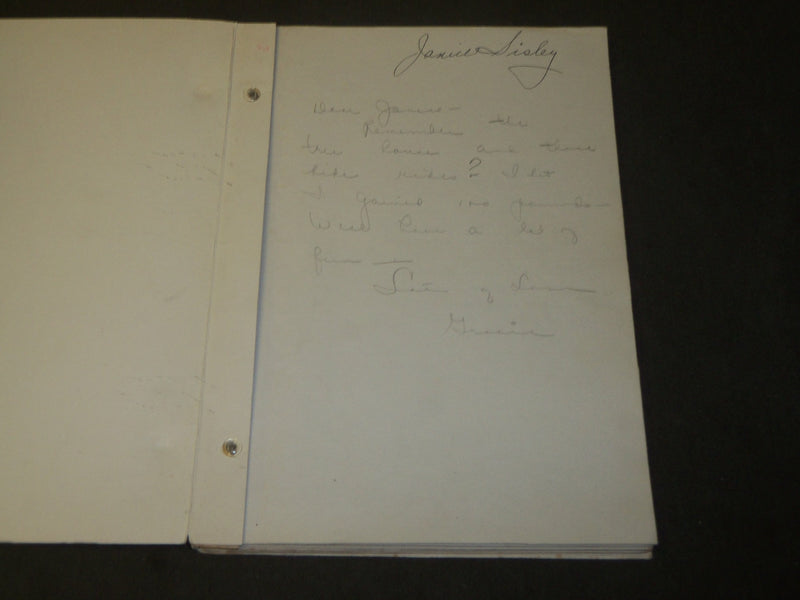 Janice Sisley
Dear Janice—
Remember the
tree house and those
bike rides? I bet
I gained pounds—
We had a lot of
fun —
Lots of Love